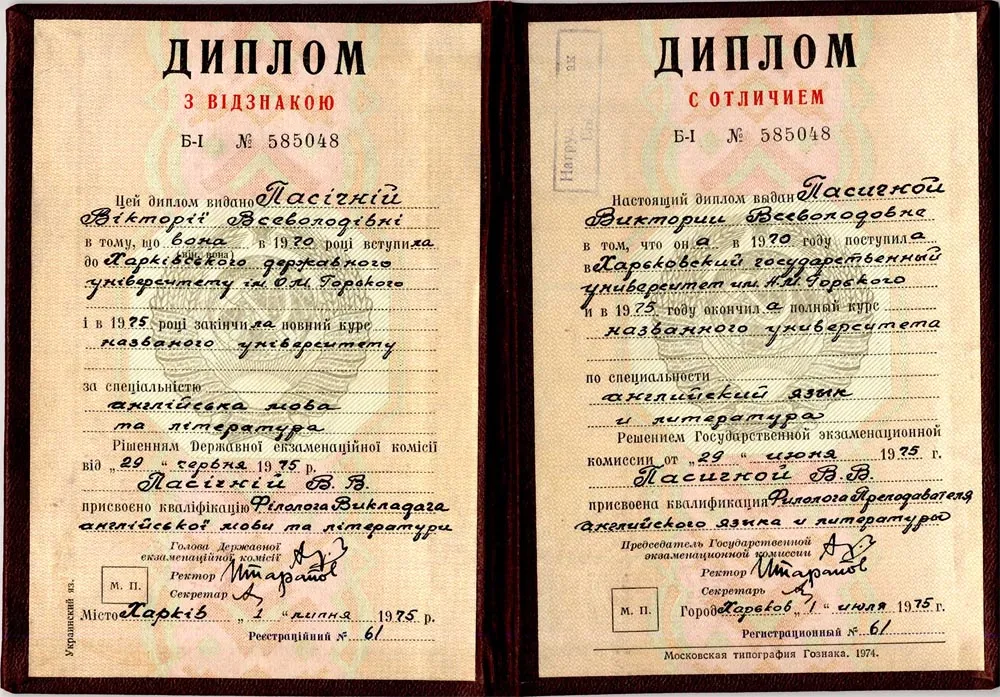 ДИПЛОМ
З ВІДЗНАКОЮ
Б-І № 585048
Цей диплом видано Пасічній
Вікторії Всеволодівні
в тому, що вона в 1970 році вступила
до Харківського державного
університету ім. О.М. Горького
і в 1975 році закінчила повний курс
названого університету
за спеціальністю
англійська мова
та література
Рішенням Державної екзаменаційної комісії
від „29“ червня 1975 р.
Пасічній В. В.
присвоєно кваліфікацію Філолога Викладача
англійської мови та літератури
Голова Державної
екзаменаційної комісії
Ректор
Секретар
М. П.
Місто Харків „1“ липня 1975 р.
Реєстраційний № 61
Украинский яз.
ДИПЛОМ
С ОТЛИЧИЕМ
Б-І № 585048
Настоящий диплом выдан Пасичной
Виктории Всеволодовне
в том, что она в 1970 году поступила
в Харьковский государственный
университет им. А.М. Горького
и в 1975 году окончила полный курс
названного университета
по специальности
английский язык
и литература
Решением Государственной экзаменационной
комиссии от „29“ июня 1975 г.
Пасичной В.В.
присвоена квалификация Филолога Преподавателя
английского языка и литературы
Председатель Государственной
экзаменационной комиссии
Ректор
Секретарь
М. П.
Город Харьков „1“ июля 1975 г.
Регистрационный № 61
Московская типография Гознака. 1974.